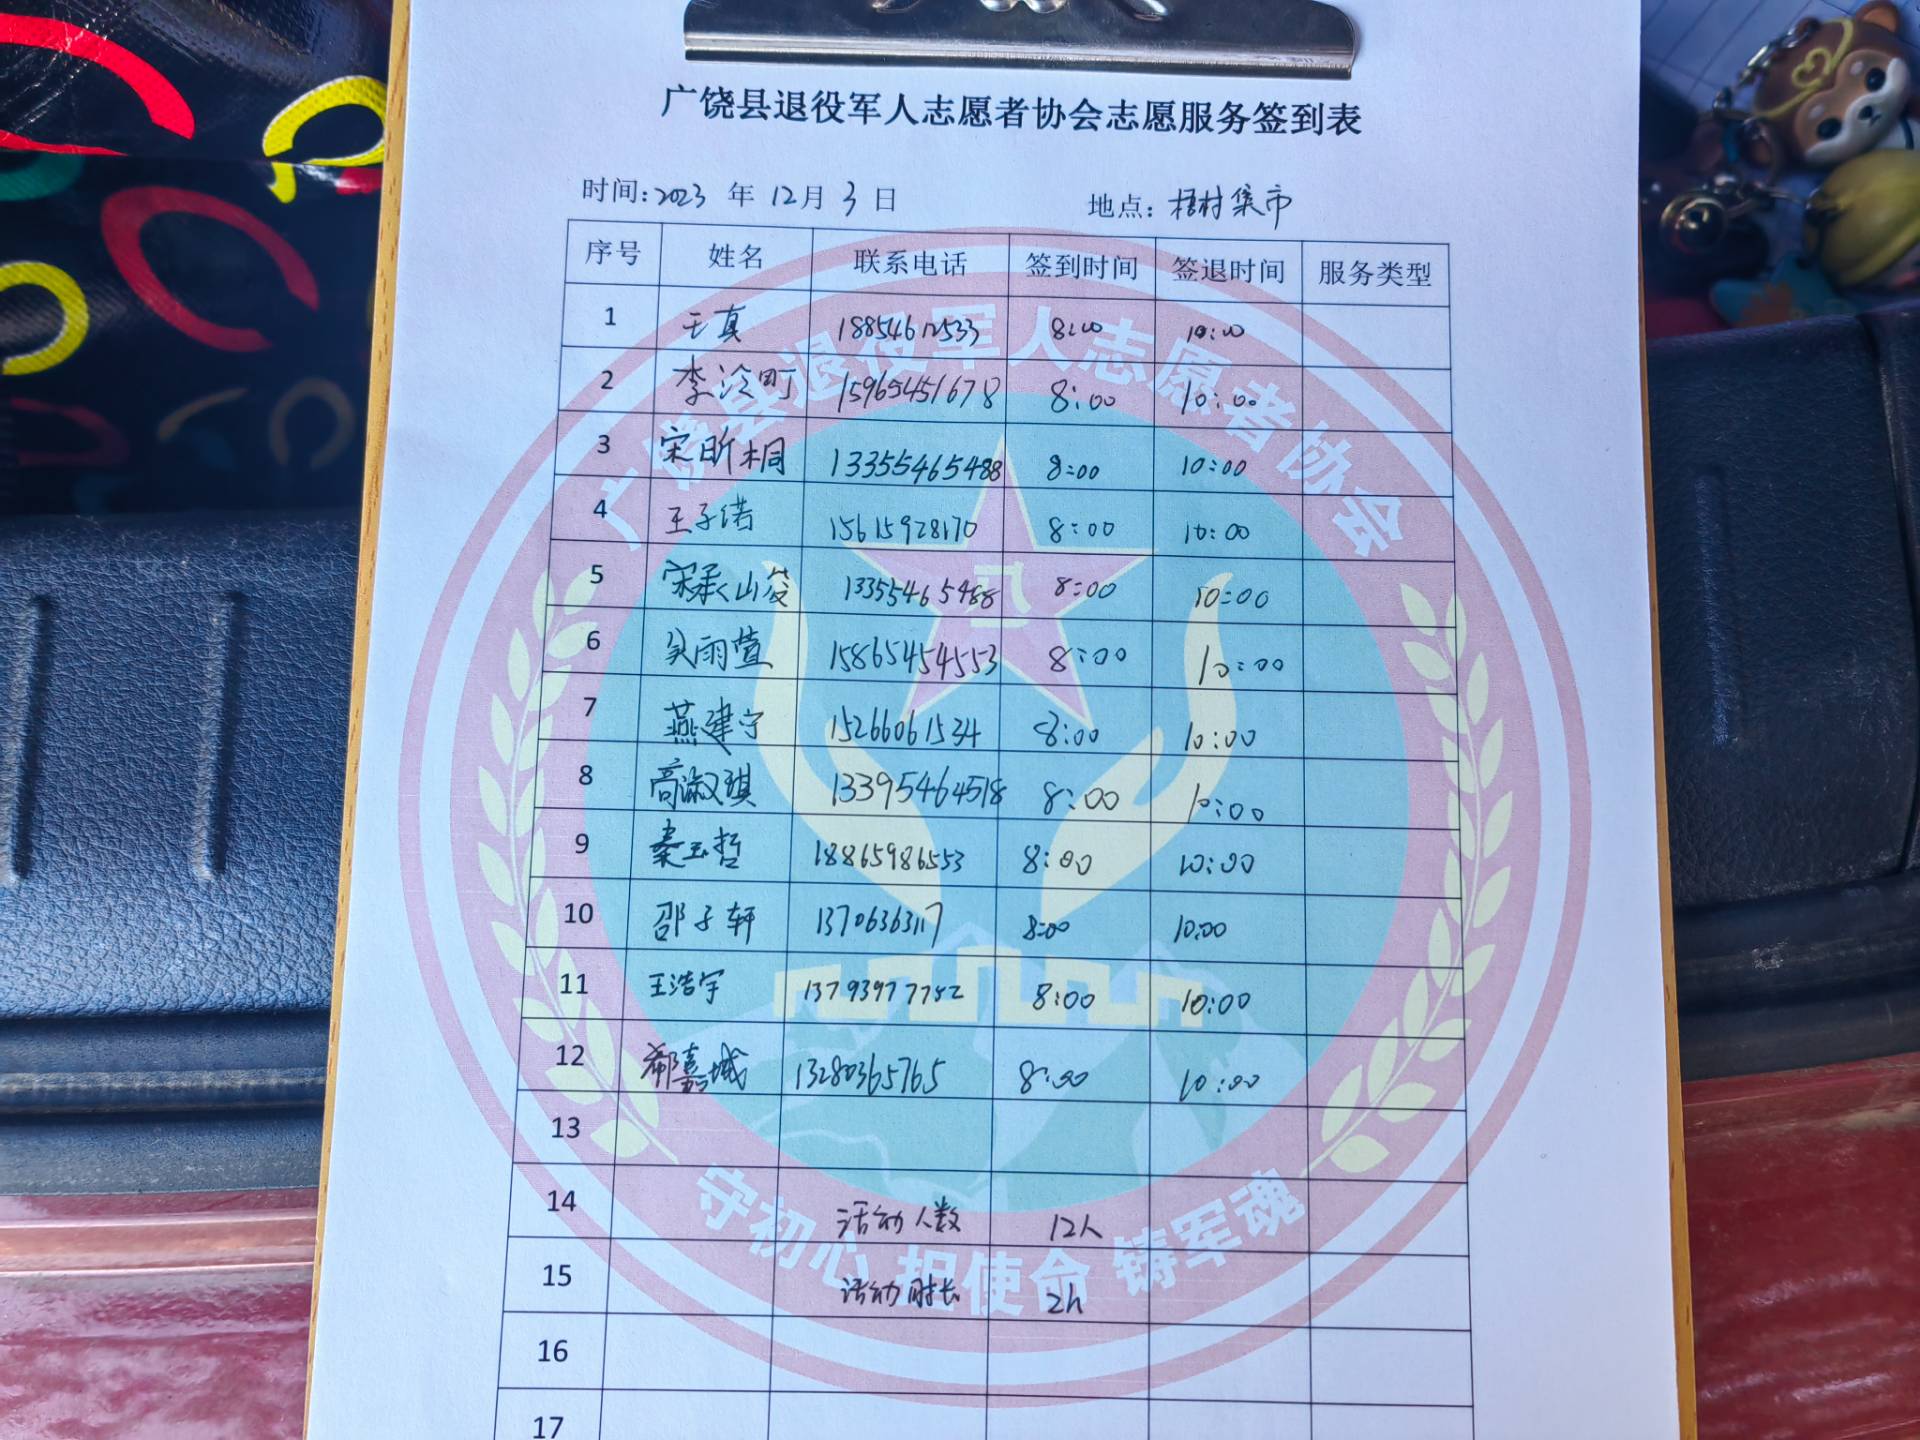 广饶县退役军人志愿者协会志愿服务签到表
时间:2023 年 12月 3 日 地点: 梧村集市
序号 姓名 联系电话 签到时间 签退时间 服务类型
1 王真 18854612533 8:00 10:00
2 李泠町 15965451678 8:00 10:00
3 宋昕桐 13355465488 8:00 10:00
4 王子诺 15615928170 8:00 10:00
5 宋承山 13355465488 8:00 10:00
6 吴雨萱 15865454553 8:00 10:00
7 燕建宁 15266061534 8:00 10:00
8 高淑琪 13395464518 8:00 10:00
9 秦玉哲 18865986553 8:00 10:00
10 邵子轩 13706363117 8:00 10:00
11 王浩宇 13793977752 8:00 10:00
12 郗嘉城 13280365765 8:00 10:00
13
14 活动人数 12人
15 活动时长 2h
16
17
广饶县退役军人志愿者协会
八一
守初心 担使命 铸军魂